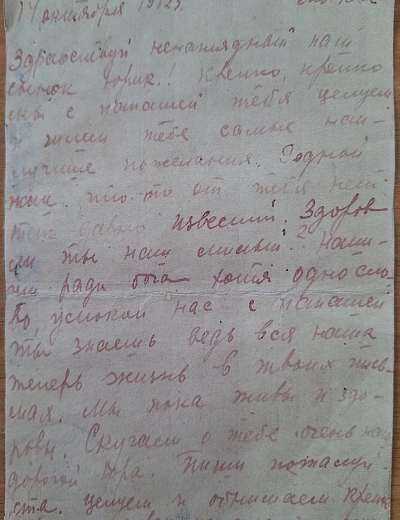 14 октября 1942г.
Здравствуй ненаглядный наш
сынок Юрик! Крепко, крепко
мы с папашей тебя целуем
и шлем тебе самые наи-
лучшие пожелания. Родной
наш, что то от тебя нет
так давно известий. Здоров
ли ты наш милый? Напи-
ши ради бога хотя одно сло-
во, успокой нас с папашей
ты знаешь ведь вся наша
теперь жизнь в твоих пись-
мах. Мы пока живы и здо-
ровы. Скучаем о тебе очень наш
дорогой Юра. Пиши пожалуй-
ста. Целуем и обнимаем крепко